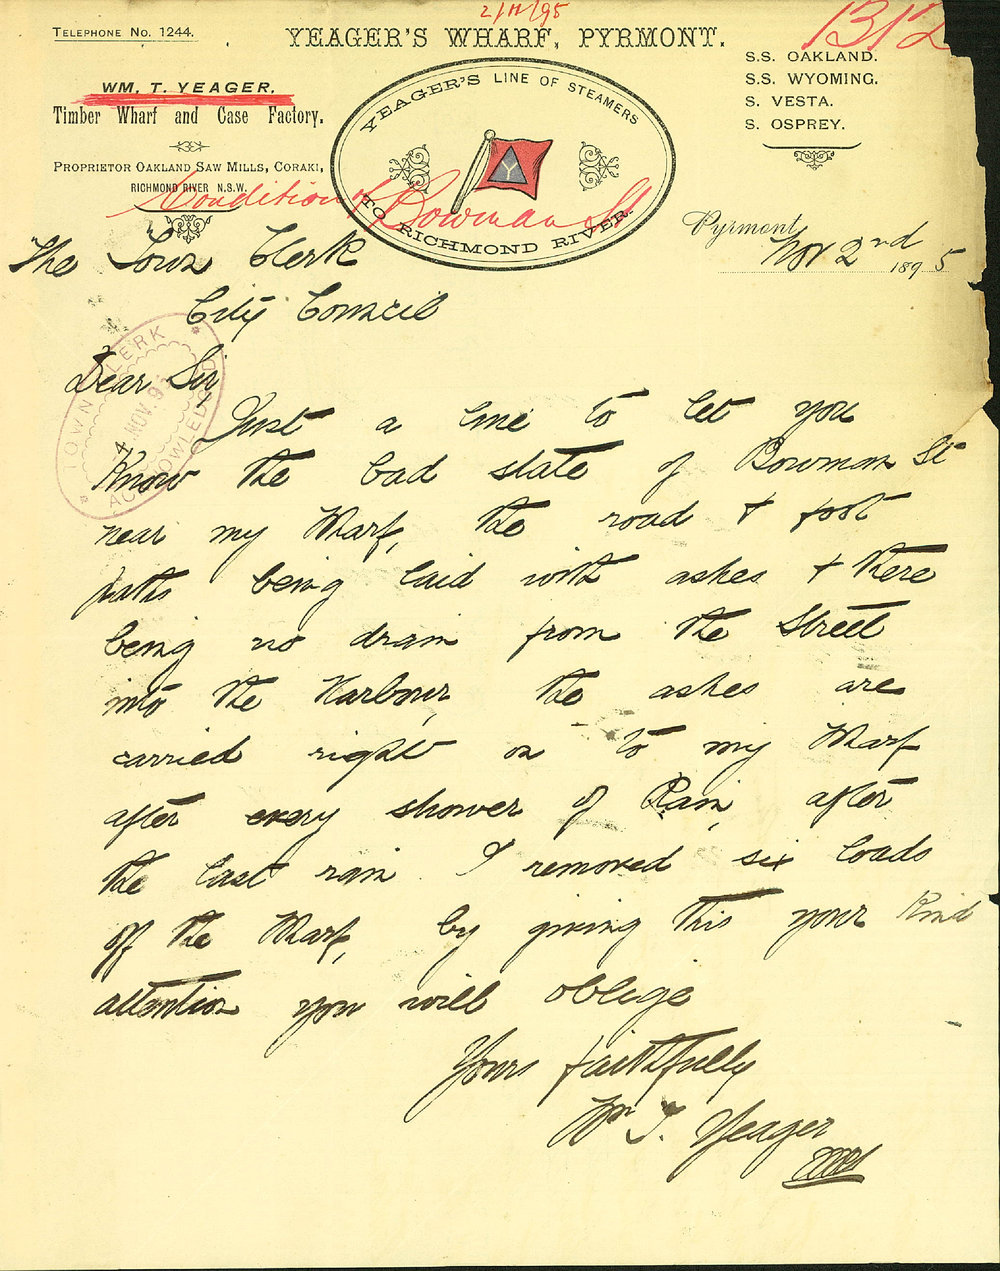 2/11/95
TELEPHONE No. 1244.
YEAGER'S WHARF, PYRMONT.
WM. T. YEAGER,
Timber Wharf and Case Factory.
PROPRIETOR OAKLAND SAW MILLS, CORAKI,
RICHMOND RIVER N.S.W.
YEAGER'S LINE OF STEAMERS
Y
TO RICHMOND RIVER.
S.S. OAKLAND.
S.S. WYOMING.
S. VESTA.
S. OSPREY.
Condition of Bowman St
Pyrmont Nov 2nd 1895
The Town Clerk
City Council
TOWN CLERK
4 NOV. 95
ACKNOWLEDGED
Dear Sir
Just a line to let you
Know the bad state of Bowman St
near my Wharf, the road & foot
paths being laid with ashes & there
being no drain from the Street
into the Harbour, the ashes are
carried right on to my Wharf
after every shower of Rain, after
the last rain I removed six loads
off the Wharf, by giving this your Kind
attention you will oblige
Yours faithfully
Wm T. Yeager